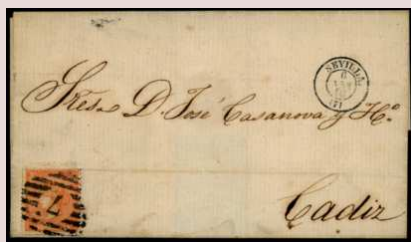 SEVILLA
6
Sres. D. José Casanova y Hº.
Cadiz
7